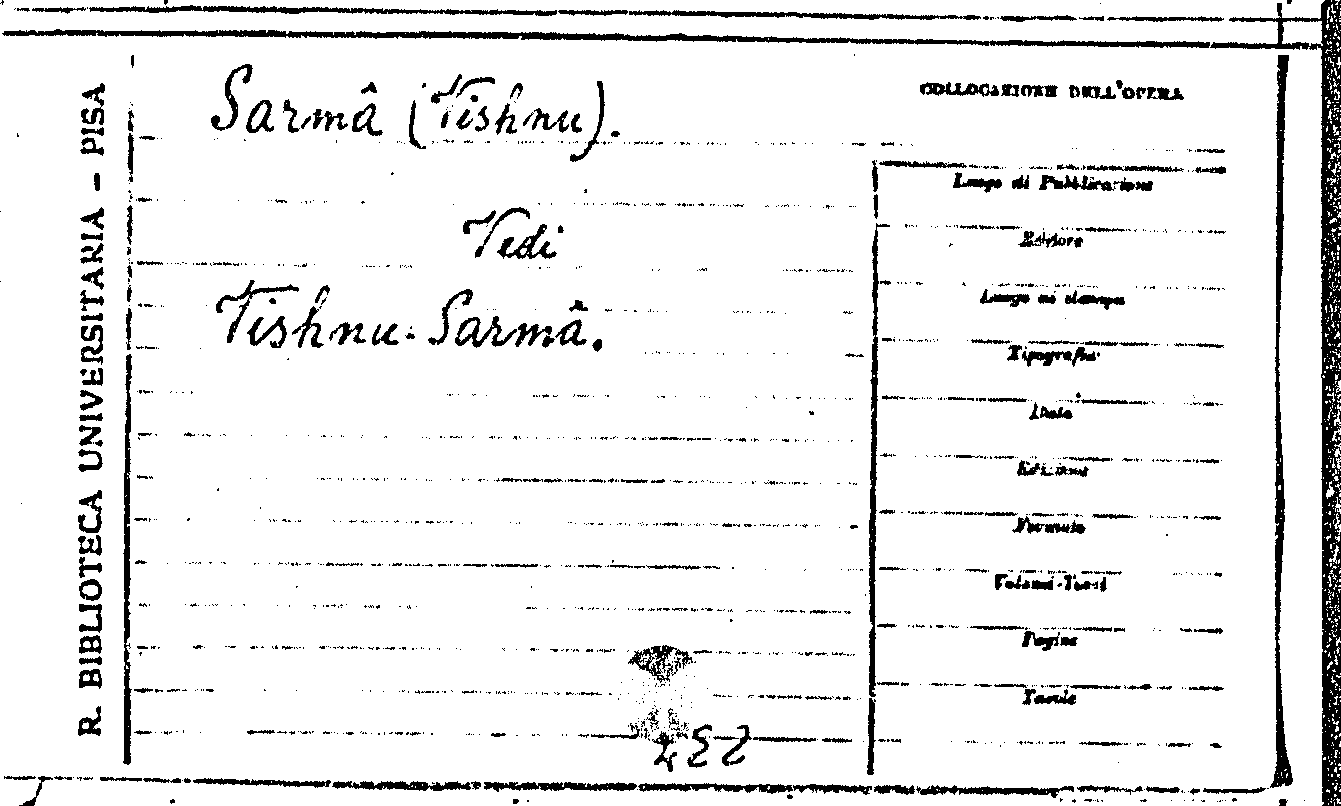 R. BIBLIOTECA UNIVERSITARIA – PISA
Sarmâ (Vishnu).
Vedi
Vishnu-Sarmâ.
COLLOCAZIONE DELL'OPERA
Luogo di Pubblicazione
Editore
Luogo di stampa
Tipografia
Data
Edizione
Formato
Volumi-Tomi
Pagine
Tavole